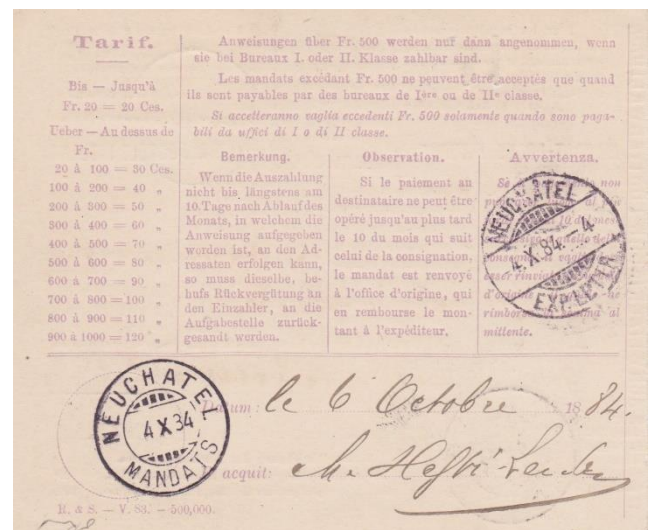 Tarif.
Bis — Jusqu'à
Fr. 20 = 20 Ces.
Ueber — Au dessus de
Fr.
20 à 100 = 30 Ces.
100 à 200 = 40 „
200 à 300 = 50 „
300 à 400 = 60 „
400 à 500 = 70 „
500 à 600 = 80 „
600 à 700 = 90 „
700 à 800 = 100 „
800 à 900 = 110 „
900 à 1000 = 120 „
Anweisungen über Fr. 500 werden nur dann angenommen, wenn
sie bei Bureaux I. oder II. Klasse zahlbar sind.
Les mandats excédant Fr. 500 ne peuvent être acceptés que quand
ils sont payables par des bureaux de Ière ou de IIe classe.
Si accetteranno vaglia eccedenti Fr. 500 solamente quando sono paga-
bili da uffici di I o di II classe.
Bemerkung.
Wenn die Auszahlung
nicht bis längstens am
10. Tage nach Ablauf des
Monats, in welchem die
Anweisung aufgegeben
worden ist, an den Ad-
ressaten erfolgen kann,
so muss dieselbe, be-
hufs Rückvergütung an
den Einzahler, an die
Aufgabestelle zurück-
gesandt werden.
Observation.
Si le paiement au
destinataire ne peut être
opéré jusqu'au plus tard
le 10 du mois qui suit
celui de la consignation,
le mandat est renvoyé
à l'office d'origine, qui
en rembourse le mon-
tant à l'expéditeur.
Avvertenza.
non
al
mittente.
NEUCHATEL
4.X.84.–4
EXP. LETTR.
NEUCHATEL
4 X 84
MANDATS
Datum: le 6 Octobre 1884.
acquit:
R. & S. — V. 83. — 500,000.